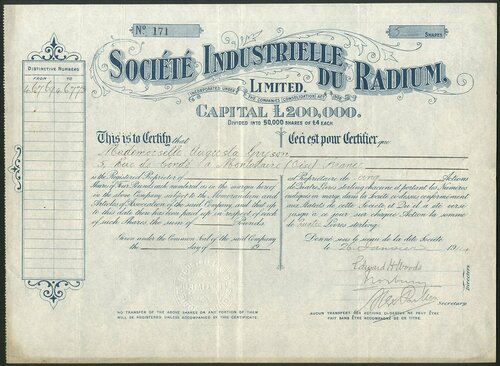 No. 171
5 SHARES
SOCIÉTÉ INDUSTRIELLE DU RADIUM,
LIMITED.
INCORPORATED UNDER THE COMPANIES (CONSOLIDATION) ACT 1908
CAPITAL £200,000.
DIVIDED INTO 50,000 SHARES OF £4 EACH
DISTINCTIVE NUMBERS
FROM TO
This is to Certify that Ceci est pour Certifier que
Mademoiselle
à Montataire (Oise) France
is the Registered Proprietor of
Shares of Four Pounds each numbered as in the margin hereof
in the above Company, subject to the Memorandum and
Articles of Association of the said Company, and that up to
this date there has been paid up in respect of each
of such Shares, the sum of Pounds.
Given under the Common Seal of the said Company
the day of 19
est Propriétaire de cinq Actions
de Quatre Livres sterling chacune et portant les Numéros
indiqués en marge dans la Société ci-dessus conformément
aux Statuts de cette Société, et Qu'il a été versé
jusqu'à ce jour sur chaque Action la somme
de quatre Livres sterling.
Donné sous le sceau de la dite Société
le 26 Janvier 1914
Edward H Woods
Directors
Secretary
NO TRANSFER OF THE ABOVE SHARES OR ANY PORTION OF THEM
WILL BE REGISTERED UNLESS ACCOMPANIED BY THIS CERTIFICATE.
AUCUN TRANSFERT DES ACTIONS CI-DESSUS NE POURRA ÊTRE
FAIT SANS ÊTRE ACCOMPAGNÉ DE CE TITRE.